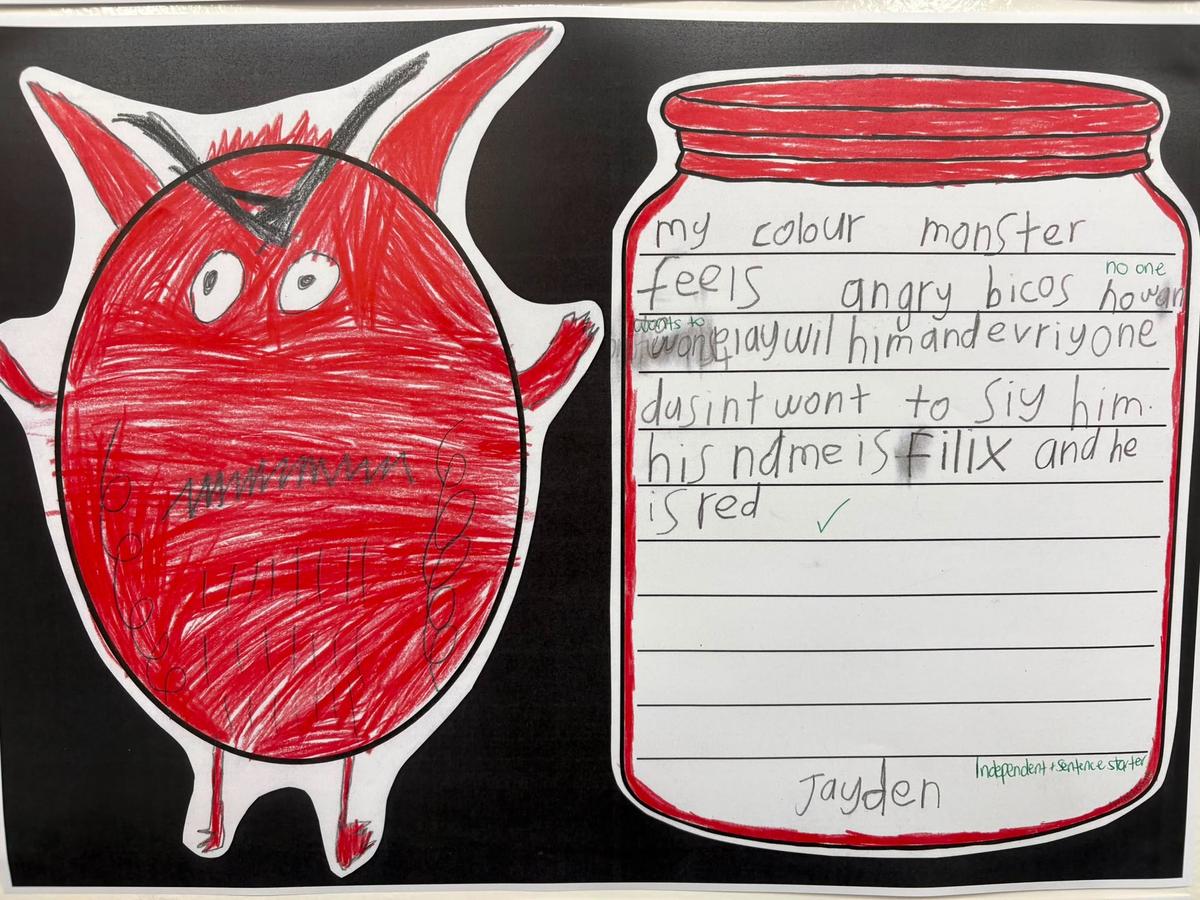 my colour monster
feels angry bicos howan
no one
wants to
wont playwil himandevriyone
dusintwont to siy him.
his name is Filix and he
is red
Independent + sentence starter
Jayden